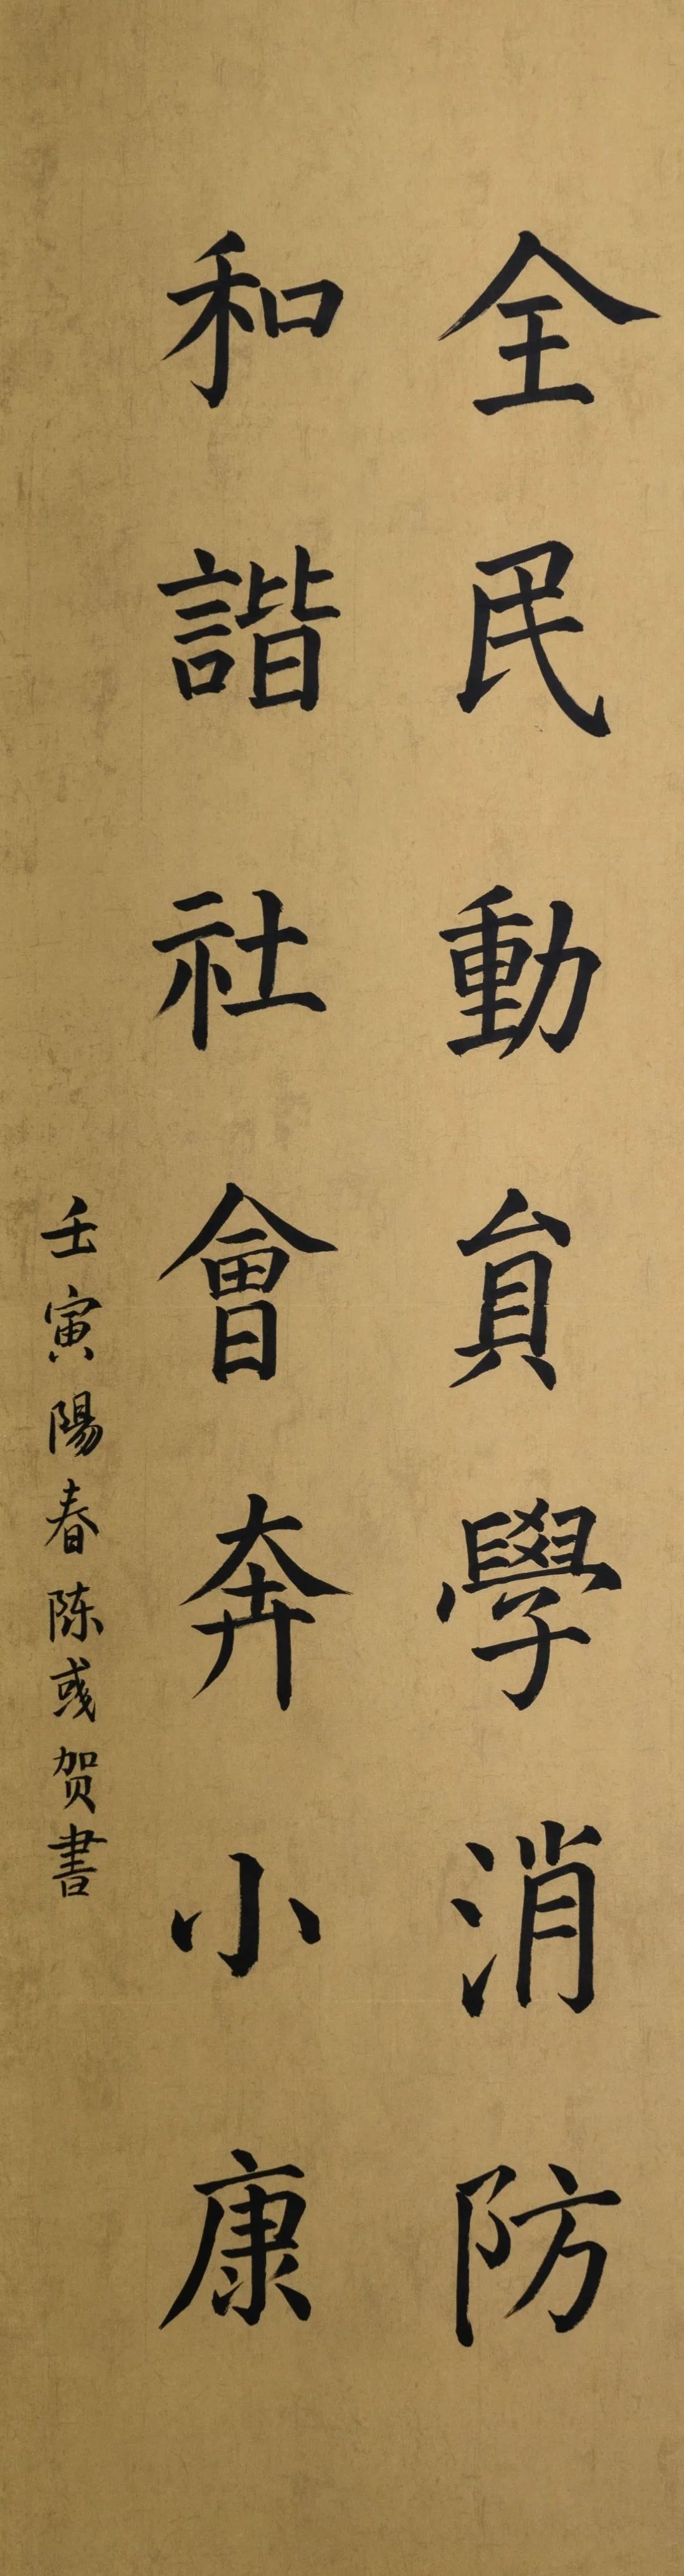 全民動員學消防
和諧社會奔小康
壬寅陽春陈彧贺書